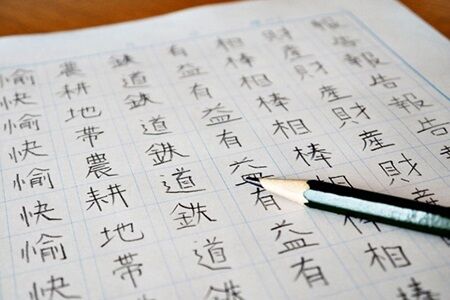 報告報告報告
財産財産財産
相棒相棒相棒相棒相
有益有益有益有益有
鉄道鉄道鉄道鉄道
農耕地帯農耕地帯
愉快愉快愉快愉快